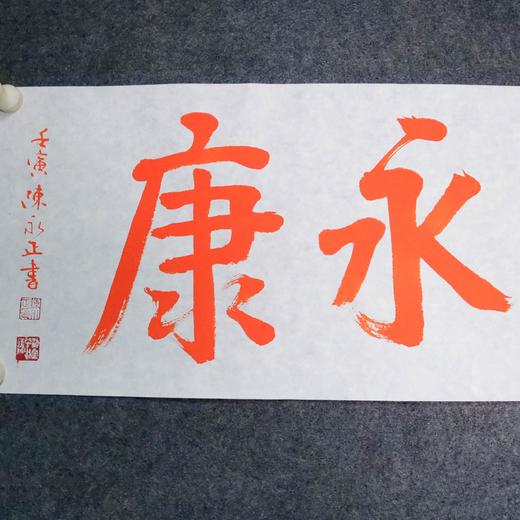 永康
壬寅陳永正書